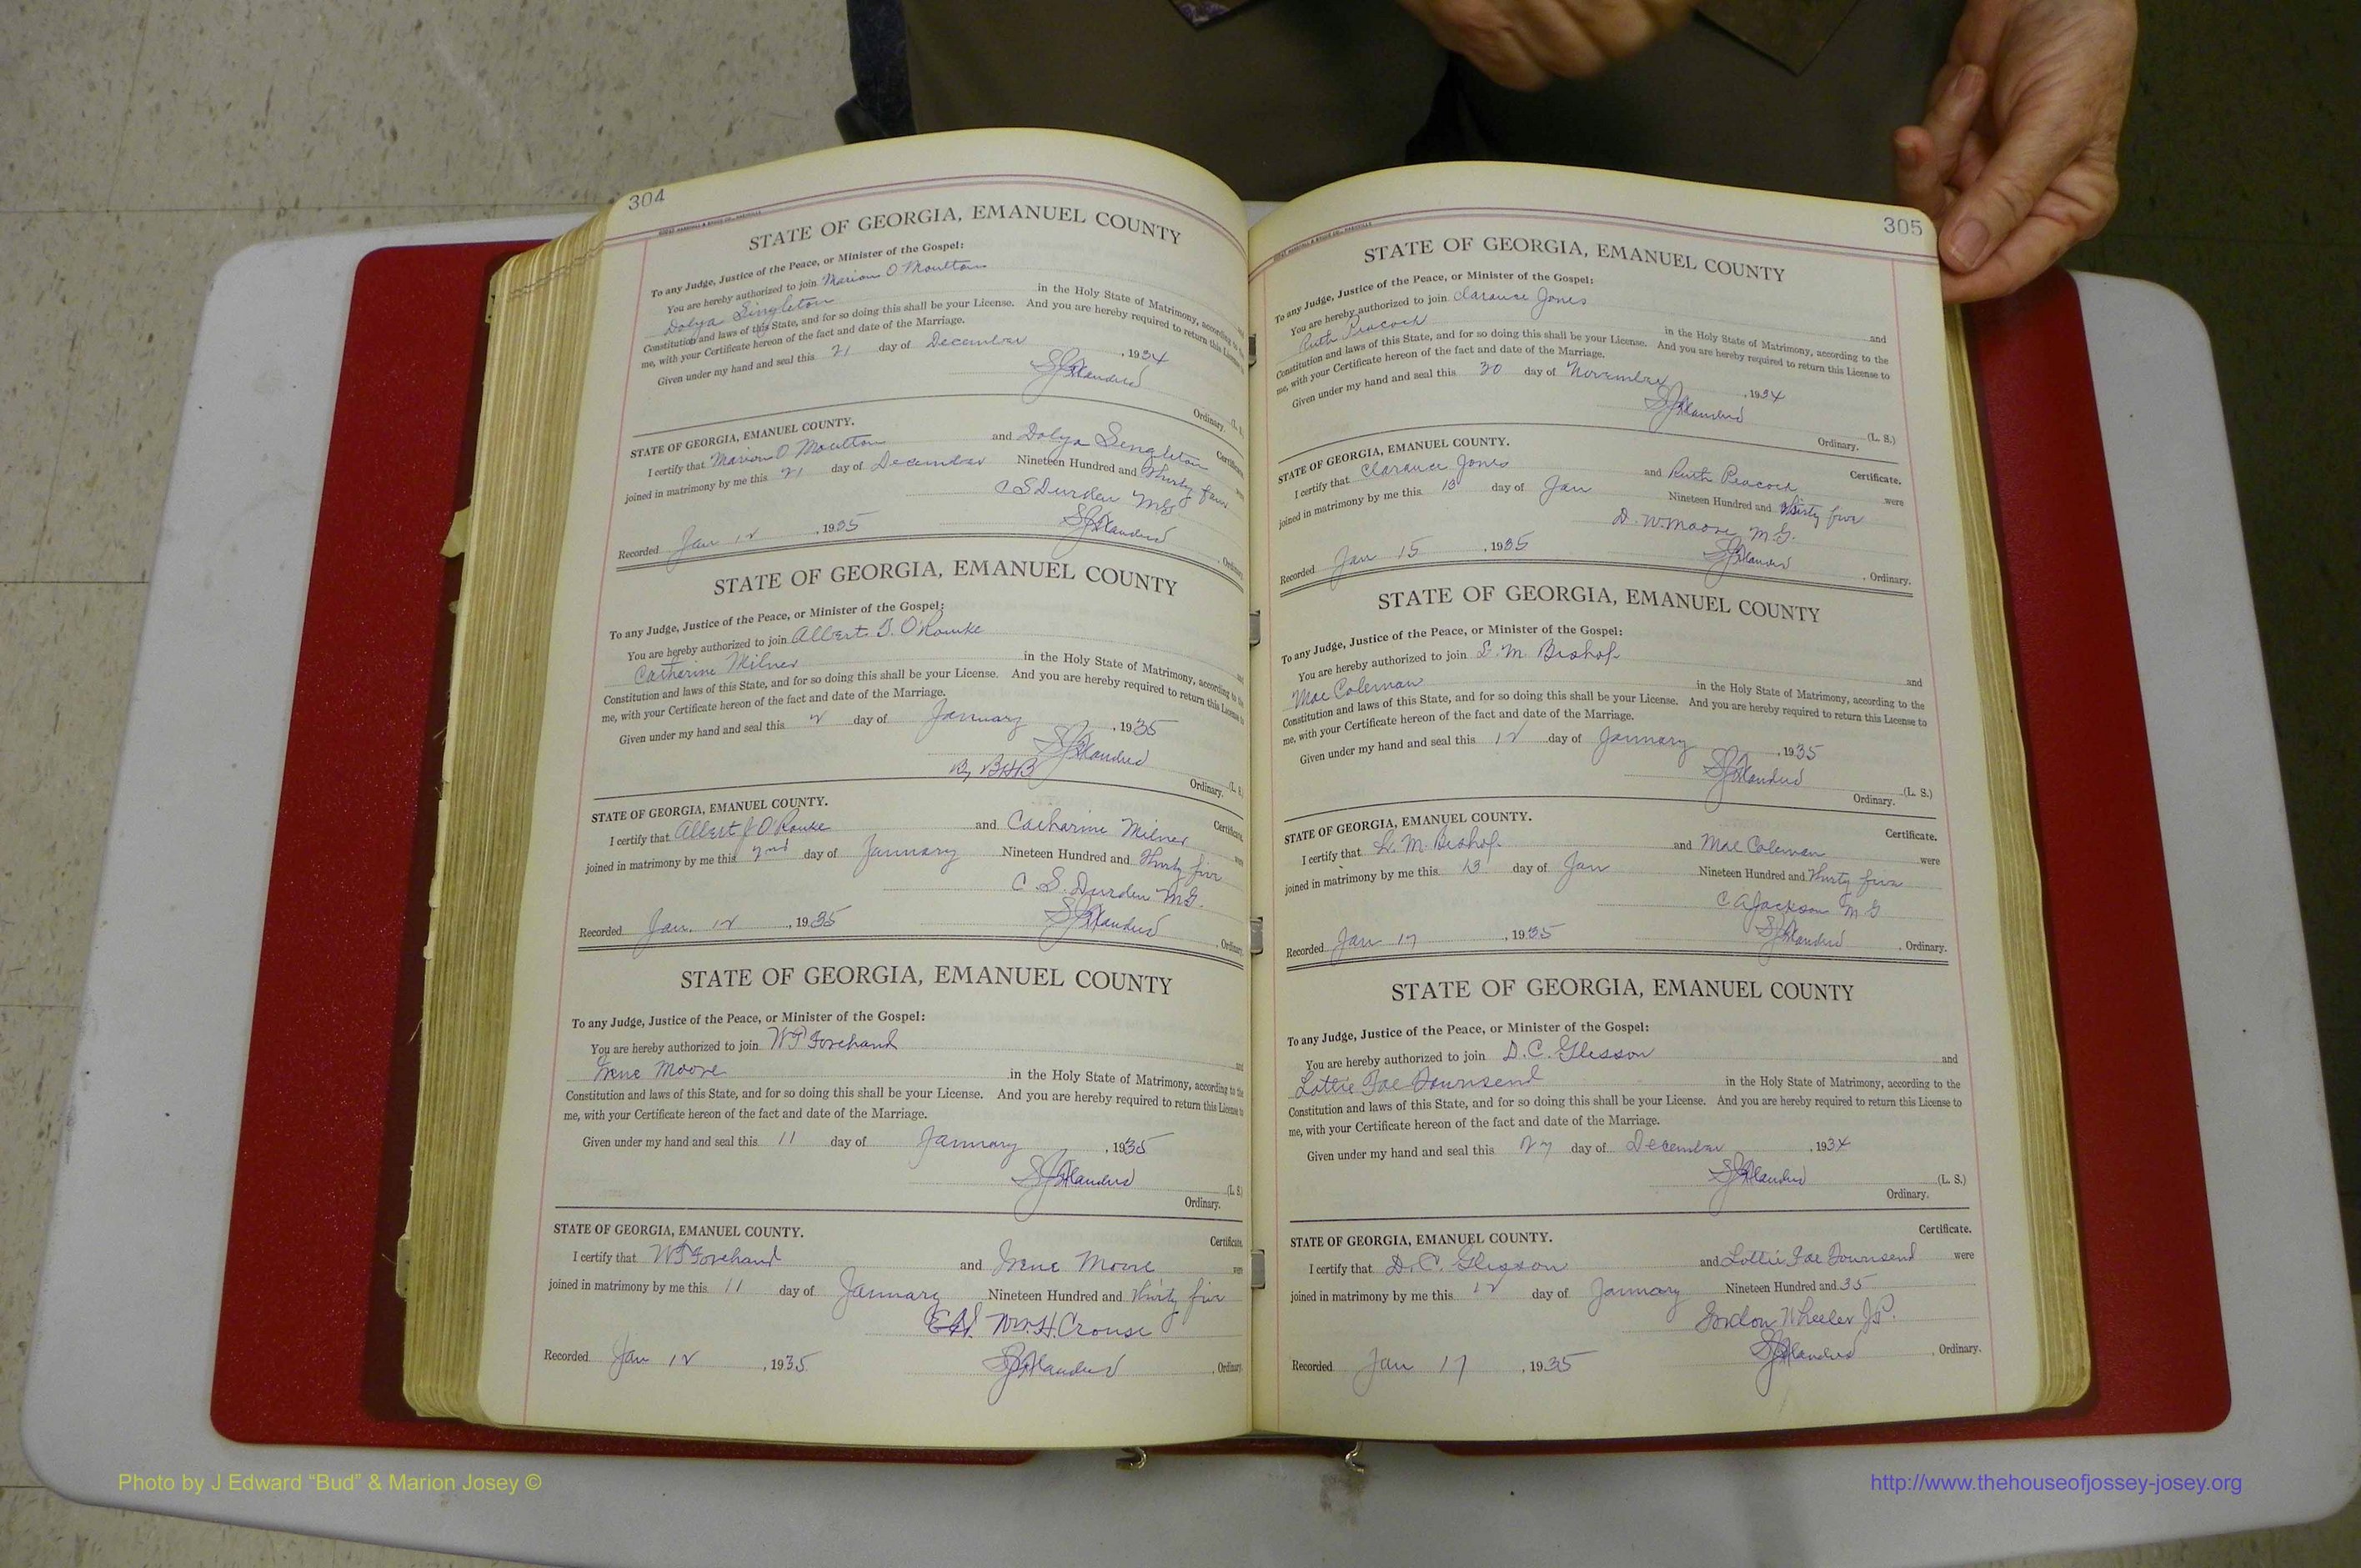 304
STATE OF GEORGIA, EMANUEL COUNTY
To any Judge, Justice of the Peace, or Minister of the Gospel:
You are hereby authorized to join Marion O Moulton
and
Dolya Singleton in the Holy State of Matrimony, according to the
Constitution and laws of this State, and for so doing this shall be your License. And you are hereby required to return this License to
me, with your Certificate hereon of the fact and date of the Marriage.
Given under my hand and seal this 21 day of December, 1934
(L. S.)
Ordinary.
STATE OF GEORGIA, EMANUEL COUNTY. Certificate.
I certify that Marion O Moulton and Dolya Singleton were
joined in matrimony by me this 21 day of December Nineteen Hundred and Thirty four
C S Durden MG
Recorded Jan 12, 1935 , Ordinary.
STATE OF GEORGIA, EMANUEL COUNTY
To any Judge, Justice of the Peace, or Minister of the Gospel:
You are hereby authorized to join Albert J. O'Rourke and
Catherine Milner in the Holy State of Matrimony, according to the
Constitution and laws of this State, and for so doing this shall be your License. And you are hereby required to return this License to
me, with your Certificate hereon of the fact and date of the Marriage.
Given under my hand and seal this 2 day of January, 1935
By BHB (L. S.)
Ordinary.
STATE OF GEORGIA, EMANUEL COUNTY. Certificate.
I certify that Albert J O'Rourke and Catharine Milner were
joined in matrimony by me this 2nd day of January Nineteen Hundred and Thirty five
C. S. Durden MG.
Recorded Jan. 12, 1935 , Ordinary.
STATE OF GEORGIA, EMANUEL COUNTY
To any Judge, Justice of the Peace, or Minister of the Gospel:
You are hereby authorized to join WT Forehand and
Irene Moore in the Holy State of Matrimony, according to the
Constitution and laws of this State, and for so doing this shall be your License. And you are hereby required to return this License to
me, with your Certificate hereon of the fact and date of the Marriage.
Given under my hand and seal this 11 day of January, 1935
(L. S.)
Ordinary.
STATE OF GEORGIA, EMANUEL COUNTY. Certificate.
I certify that WT Forehand and Irene Moore were
joined in matrimony by me this 11 day of January Nineteen Hundred and Thirty five
Wm. H. Crouse
Recorded Jan 12, 1935 , Ordinary.
305
STATE OF GEORGIA, EMANUEL COUNTY
To any Judge, Justice of the Peace, or Minister of the Gospel:
You are hereby authorized to join Clarance Jones and
Ruth Peacock in the Holy State of Matrimony, according to the
Constitution and laws of this State, and for so doing this shall be your License. And you are hereby required to return this License to
me, with your Certificate hereon of the fact and date of the Marriage.
Given under my hand and seal this 30 day of November, 1934
(L. S.)
Ordinary.
STATE OF GEORGIA, EMANUEL COUNTY. Certificate.
I certify that Clarance Jones and Ruth Peacock were
joined in matrimony by me this 13 day of Jan Nineteen Hundred and Thirty five
D. W. Moore M.G.
Recorded Jan 15, 1935 , Ordinary.
STATE OF GEORGIA, EMANUEL COUNTY
To any Judge, Justice of the Peace, or Minister of the Gospel:
You are hereby authorized to join L. M. Bishop and
Mae Coleman in the Holy State of Matrimony, according to the
Constitution and laws of this State, and for so doing this shall be your License. And you are hereby required to return this License to
me, with your Certificate hereon of the fact and date of the Marriage.
Given under my hand and seal this 12 day of January, 1935
(L. S.)
Ordinary.
STATE OF GEORGIA, EMANUEL COUNTY. Certificate.
I certify that L. M. Bishop and Mae Coleman were
joined in matrimony by me this 13 day of Jan Nineteen Hundred and Thirty five
C A Jackson M G
Recorded Jan 17, 1935 , Ordinary.
STATE OF GEORGIA, EMANUEL COUNTY
To any Judge, Justice of the Peace, or Minister of the Gospel:
You are hereby authorized to join D. C. Glisson and
Lottie Fae Townsend in the Holy State of Matrimony, according to the
Constitution and laws of this State, and for so doing this shall be your License. And you are hereby required to return this License to
me, with your Certificate hereon of the fact and date of the Marriage.
Given under my hand and seal this 27 day of December, 1934
(L. S.)
Ordinary.
Certificate.
STATE OF GEORGIA, EMANUEL COUNTY.
I certify that D. C. Glisson and Lottie Fae Townsend were
joined in matrimony by me this 12 day of January Nineteen Hundred and 35
Gordon Wheeler J.P.
Recorded Jan 17, 1935 , Ordinary.
Photo by J Edward “Bud” & Marion Josey ©
http://www.thehouseofjossey-josey.org